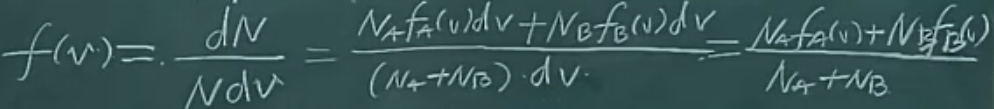 f(v) = \frac{dN}{Ndv} = \frac{N_A f_A(v)dv + N_B f_B(v)dv}{(N_A + N_B) \cdot dv} = \frac{N_A f_A(v) + N_B f_B(v)}{N_A + N_B}